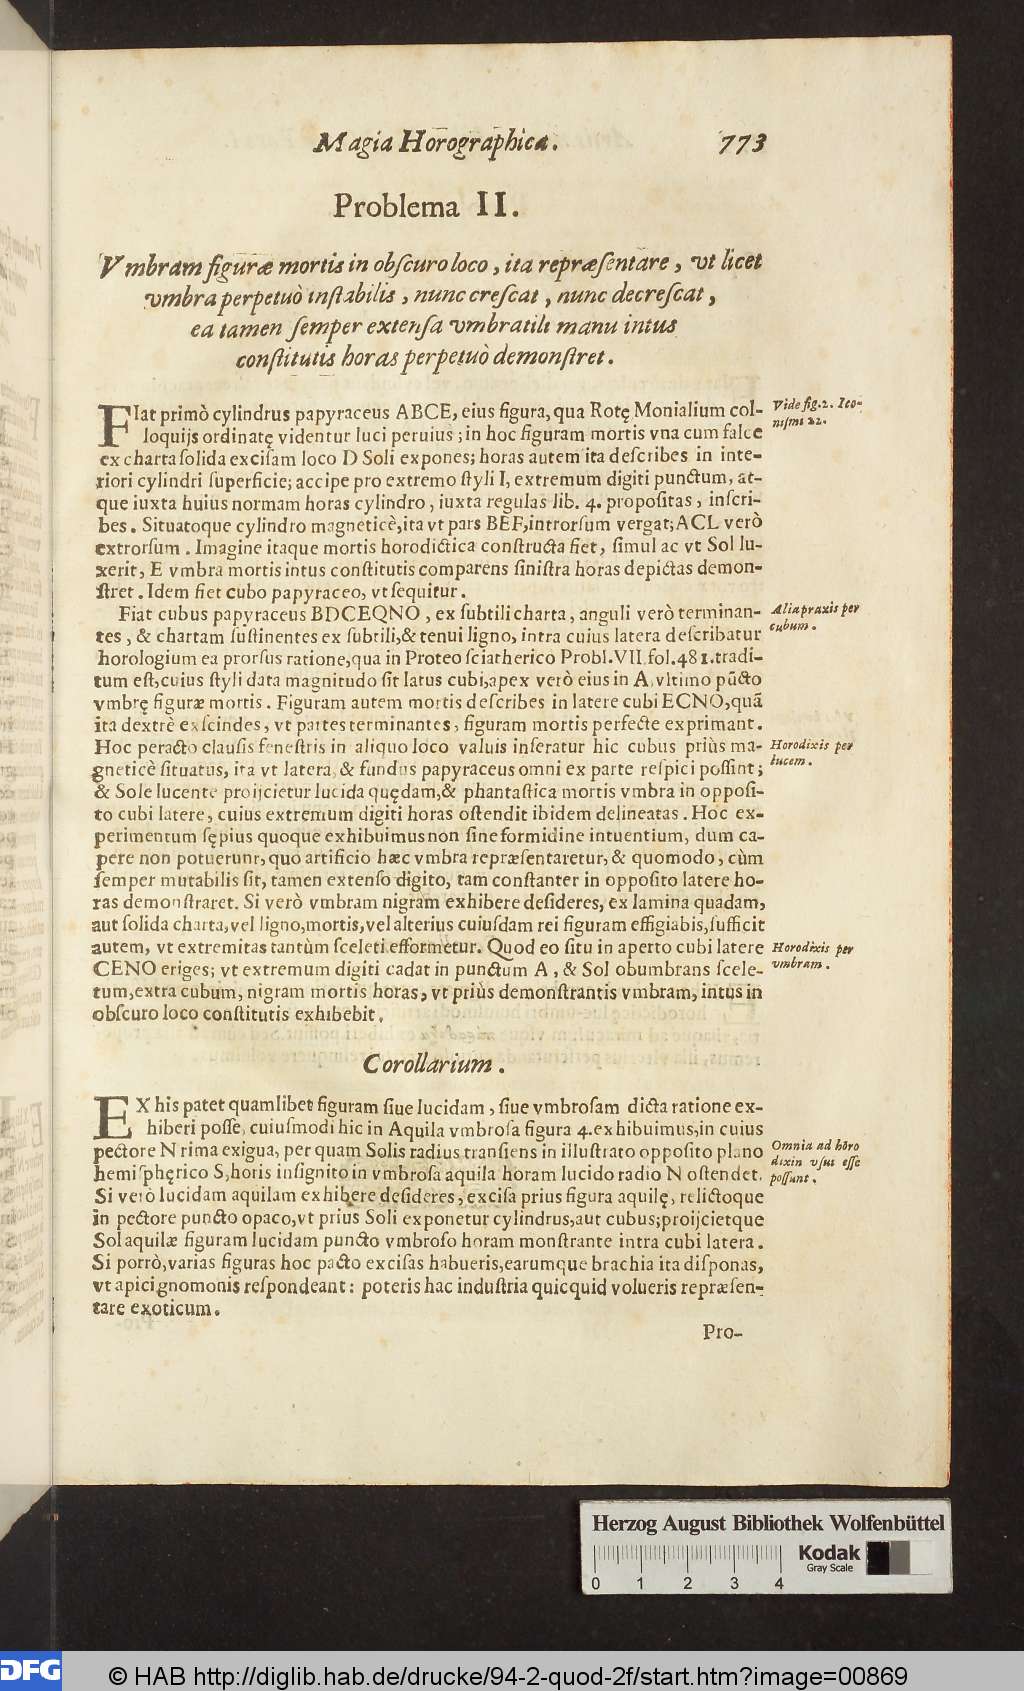 Magia Horographica. 773
Problema II.
Vmbram figuræ mortis in obſcuro loco, ita repræſentare, vt licet
vmbra perpetuò inſtabilis, nunc creſcat, nunc decreſcat,
ea tamen ſemper extenſa vmbratili manu intus
conſtitutis horas perpetuò demonſtret.
FIat primò cylindrus papyraceus ABCE, eius figura, qua Rotę Monialium col-
loquijs ordinatę videntur luci peruius; in hoc figuram mortis vna cum falce
ex charta ſolida exciſam loco D Soli expones; horas autem ita deſcribes in inte-
riori cylindri ſuperficie; accipe pro extremo ſtyli I, extremum digiti punctum, at-
que iuxta huius normam horas cylindro, iuxta regulas lib. 4. propoſitas, inſcri-
bes. Situatoque cylindro magneticè, ita vt pars BEF, introrſum vergat; ACL verò
extrorſum. Imagine itaque mortis horodictica conſtructa fiet, ſimul ac vt Sol lu-
xerit, E vmbra mortis intus conſtitutis comparens ſiniſtra horas depictas demon-
ſtret. Idem fiet cubo papyraceo, vt ſequitur.
Vide fig. 2. Ico-
niſmi 22.
Fiat cubus papyraceus BDCEQNO, ex ſubtili charta, anguli verò terminan-
tes, & chartam ſuſtinentes ex ſubtili, & tenui ligno, intra cuius latera deſcribatur
horologium ea prorſus ratione, qua in Proteo ſciatherico Probl. VII. fol. 481. tradi-
tum eſt, cuius ſtyli data magnitudo ſit latus cubi, apex verò eius in A, vltimo pũcto
vmbrę figuræ mortis. Figuram autem mortis deſcribes in latere cubi ECNO, quã
ita dextrè exſcindes, vt partes terminantes, figuram mortis perfecte exprimant.
Hoc peracto clauſis feneſtris in aliquo loco valuis inſeratur hic cubus priùs ma-
gneticè ſituatus, ita vt latera, & fundus papyraceus omni ex parte reſpici poſſint;
& Sole lucente proijcietur lucida quędam, & phantaſtica mortis vmbra in oppoſi-
to cubi latere, cuius extremum digiti horas oſtendit ibidem delineatas. Hoc ex-
perimentum ſępius quoque exhibuimus non ſine formidine intuentium, dum ca-
pere non potuerunt, quo artificio hæc vmbra repræſentaretur, & quomodo, cùm
ſemper mutabilis ſit, tamen extenſo digito, tam conſtanter in oppoſito latere ho-
ras demonſtraret. Si verò vmbram nigram exhibere deſideres, ex lamina quadam,
aut ſolida charta, vel ligno, mortis, vel alterius cuiuſdam rei figuram effigiabis, ſufficit
autem, vt extremitas tantùm ſceleti efformetur. Quod eo ſitu in aperto cubi latere
CENO eriges; vt extremum digiti cadat in punctum A, & Sol obumbrans ſcele-
tum, extra cubum, nigram mortis horas, vt priùs demonſtrantis vmbram, intus in
obſcuro loco conſtitutis exhibebit.
Alia praxis per
cubum.
Horodixis per
lucem.
Horodixis per
vmbram.
Corollarium.
EX his patet quamlibet figuram ſiue lucidam, ſiue vmbroſam dicta ratione ex-
hiberi poſſe, cuiuſmodi hic in Aquila vmbroſa figura 4. exhibuimus, in cuius
pectore N rima exigua, per quam Solis radius tranſiens in illuſtrato oppoſito plano
hemiſphęrico S, horis inſignito in vmbroſa aquila horam lucido radio N oſtendet.
Si verò lucidam aquilam exhibere deſideres, exciſa prius figura aquilę, relictoque
in pectore puncto opaco, vt prius Soli exponetur cylindrus, aut cubus; proijcietque
Sol aquilæ figuram lucidam puncto vmbroſo horam monſtrante intra cubi latera.
Si porrò, varias figuras hoc pacto exciſas habueris, earumque brachia ita diſponas,
vt apici gnomonis reſpondeant: poteris hac induſtria quicquid volueris repræſen-
tare exoticum.
Omnia ad horo
dixin vſui eſſe
poſſunt.
Pro-
Herzog August Bibliothek Wolfenbüttel
Kodak
Gray Scale
0 1 2 3 4
DFG
© HAB http://diglib.hab.de/drucke/94-2-quod-2f/start.htm?image=00869